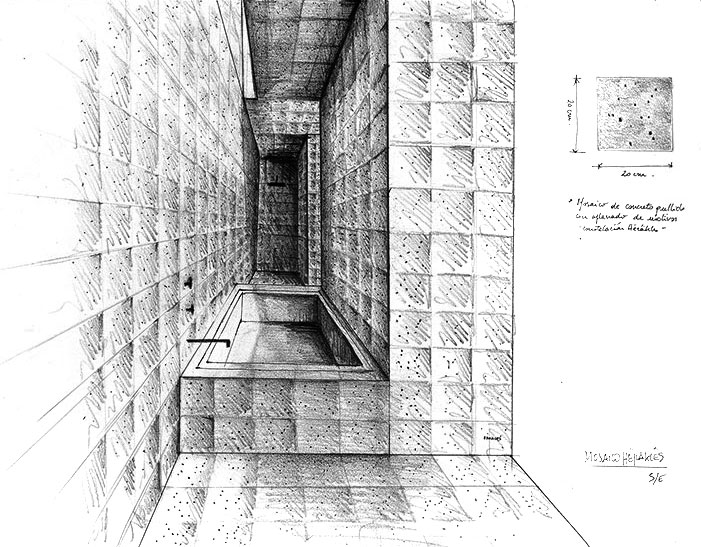 20 cm.
20 cm.
* Mosaico de concreto pullido
con aplanado de motivos
"constelación Hérakles"
MOSAICO HERAKLÉS
S/E